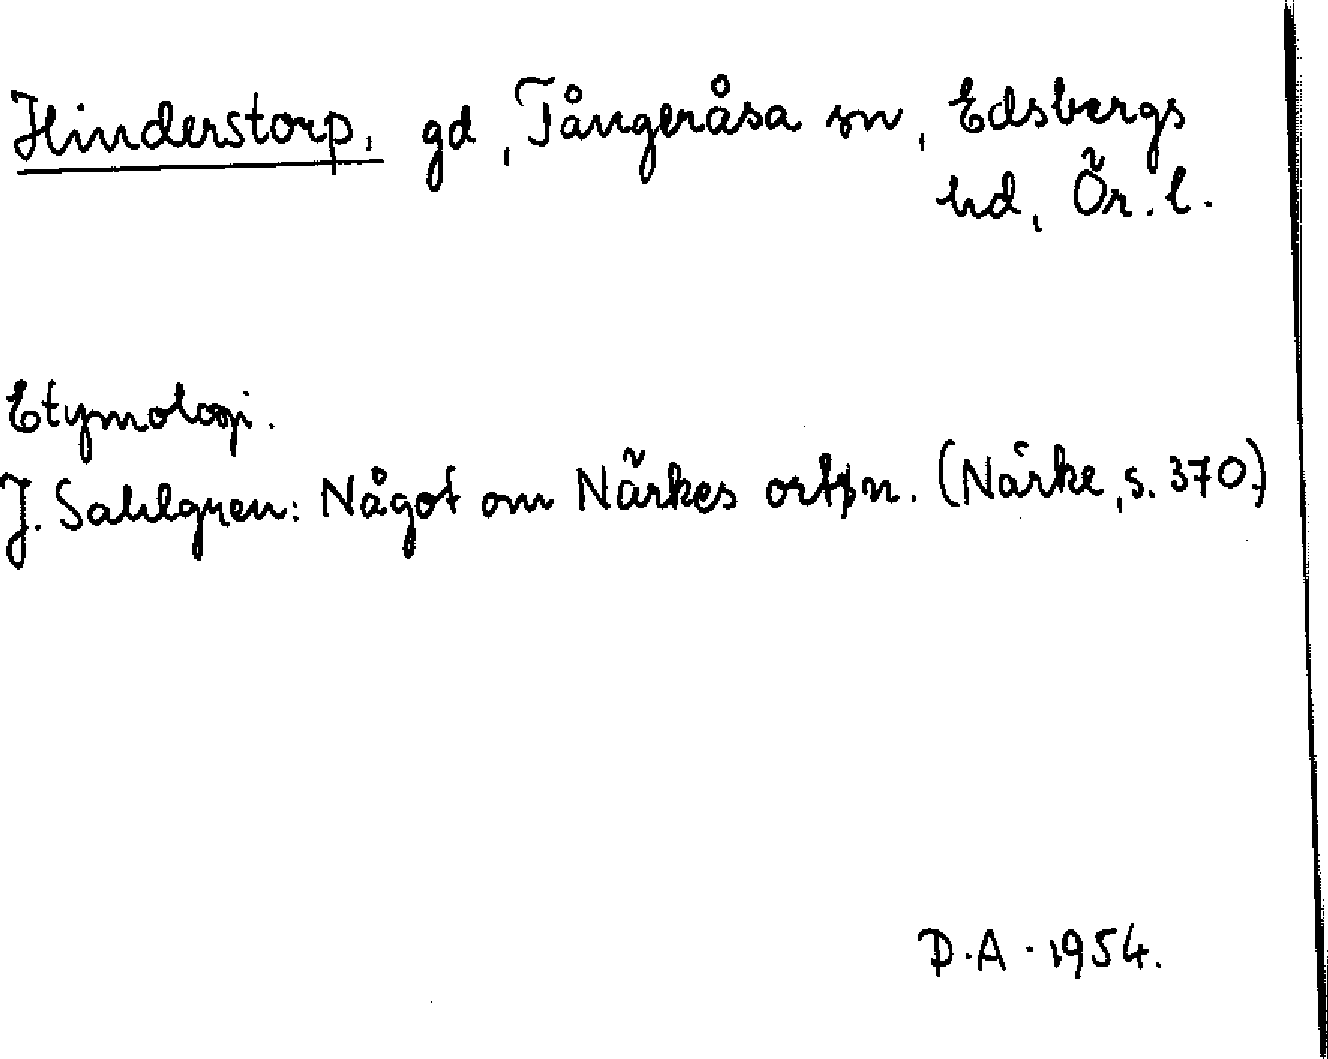 Hinderstorp, gd, Tångeråsa sn, Edsbergs
hd, Ör. l.
Etymologi.
J. Sahlgren: Något om Närkes ortsn. (Närke, s. 370.)
D.A. 1954.